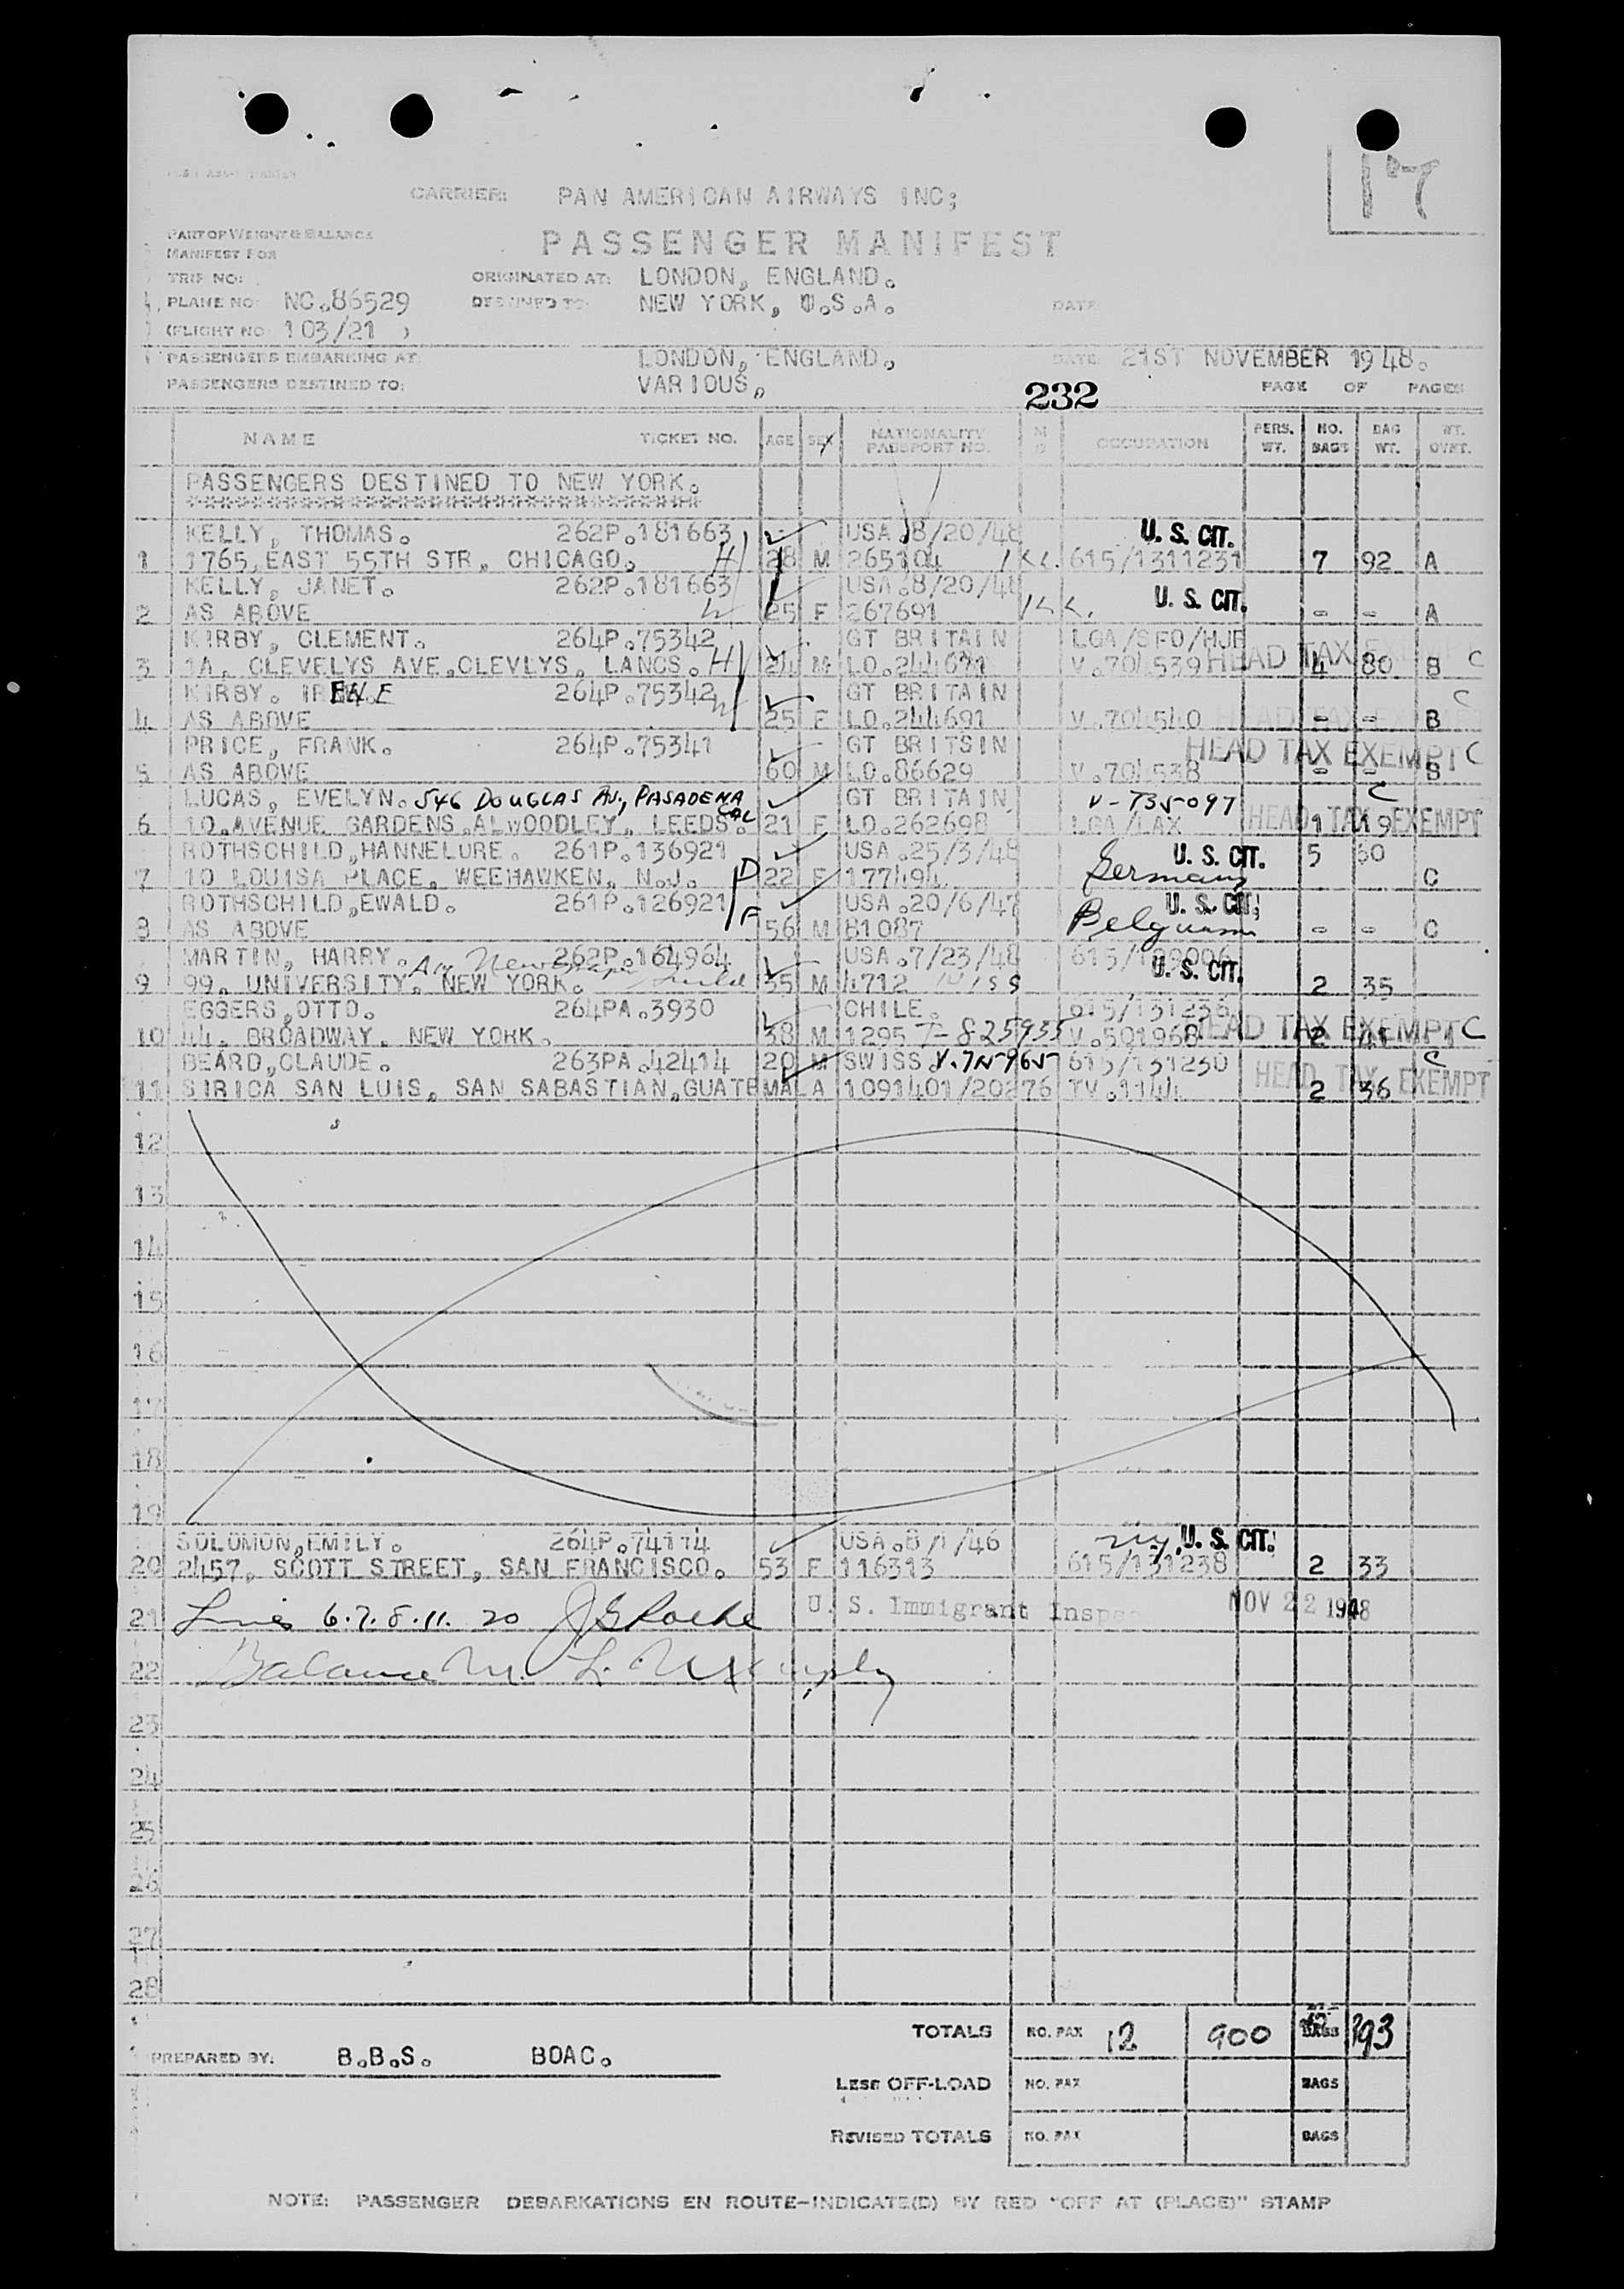 17
CARRIER: PAN AMERICAN AIRWAYS INC;
PART OF WEIGHT & BALANCE
MANIFEST FOR
PASSENGER MANIFEST
TRIP NO:
ORIGINATED AT: LONDON, ENGLAND.
PLANE NO NC.86529
DESTINED TO: NEW YORK, U.S.A.
DATE
(FLIGHT NO 103/21 )
PASSENGERS EMBARKING AT: LONDON, ENGLAND, DATE: 21ST NOVEMBER 1948.
PASSENGERS DESTINED TO: VARIOUS, 232 PAGE OF PAGES
NAME TICKET NO. AGE SEX NATIONALITY PASSPORT NO. OCCUPATION PERS. WT. NO. BAGS BAG WT. WT. OVRT.
PASSENGERS DESTINED TO NEW YORK.
KELLY, THOMAS. 262P.181663 USA.8/20/48 U. S. CIT.
1 1765, EAST 55TH STR, CHICAGO. H 28 M 265104 615/1311231 7 92 A
KELLY, JANET. 262P.181663 USA.8/20/48 U. S. CIT.
2 AS ABOVE W 25 F 267691 - - A
KIRBY, CLEMENT. 264P.75342 GT BRITAIN LGA/SFO/HJE HEAD TAX EXEMPT C
3 1A, CLEVELYS AVE.CLEVLYS, LANCS. H 24 M LO.244671 V.704539 4 80 B
KIRBY. IRENE 264P.75342 GT BRITAIN C
4 AS ABOVE W 25 F LO.244691 V.704540 HEAD TAX EXEMPT - - B
PRICE, FRANK. 264P.75341 GT BRITSIN HEAD TAX EXEMPT C
5 AS ABOVE 60 M LO.86629 V.704538 - - B
LUCAS, EVELYN. 546 DOUGLAS AV., PASADENA CAL GT BRITAIN V-735097 C
6 10.AVENUE GARDENS.ALWOODLEY, LEEDS. 21 F LO.262698 LGA/LAX HEAD TAX EXEMPT 1 19
ROTHSCHILD,HANNELURE. 261P.136921 USA.25/3/48 U. S. CIT. 5 50
7 10 LOUISA PLACE, WEEHAWKEN, N.J. D 22 F 177494 Germany C
ROTHSCHILD,EWALD. 261P.126921 USA.20/6/47 U. S. CIT.
8 AS ABOVE F 56 M 81087 Belguum - - C
MARTIN, HARRY. 262P.164964 USA.7/23/48 U. S. CIT.
Am Newspaper Guild
9 99. UNIVERSITY, NEW YORK. 35 M 4712 2 35
EGGERS,OTTO. 264PA.3930 CHILE. 615/131236
10 44. BROADWAY. NEW YORK. 38 M 1295 T-825935 V.501968 HEAD TAX EXEMPT C 2 41
BEARD,CLAUDE. 263PA.42414 20 M SWISS. 615/131230 C
11 SIRICA SAN LUIS, SAN SABASTIAN,GUATEMALA 1091401/20276 TV.1144 HEAD TAX EXEMPT 2 36
12
13
14
15
16
17
18
19
SOLOMON,EMILY. 264P.74114 USA.8/1/46 N.Y. U. S. CIT.
20 2457, SCOTT STREET, SAN FRANCISCO. 53 F 116313 615/131238 2 33
21 Lines 6.7.8.11. 20 J G Roche U. S. Immigrant Inspe NOV 22 1948
22 Balance M. L.
23
24
25
26
27
28
TOTALS NO. PAX 12 900 BAGS 393
PREPARED BY: B.B.S. BOAC.
LESS OFF-LOAD NO. PAX BAGS
REVISED TOTALS NO. PAX BAGS
NOTE: PASSENGER DEBARKATIONS EN ROUTE-INDICATE(D) BY RED "OFF AT (PLACE)" STAMP